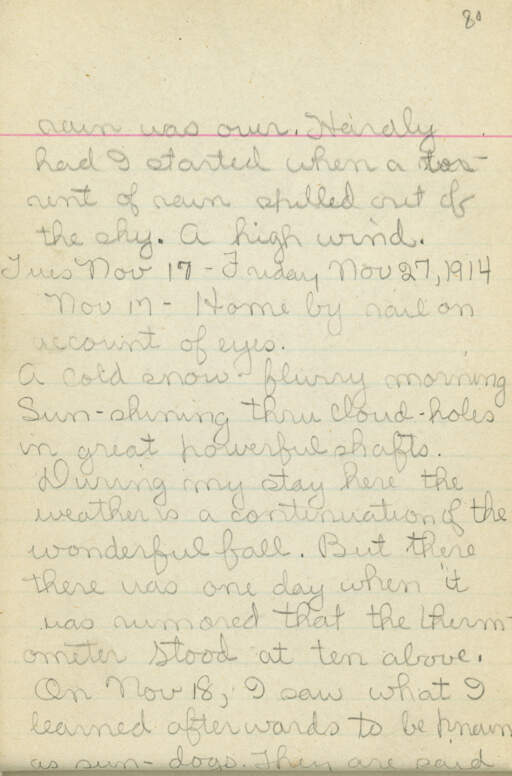 80
rain was over. Hardly
had I started when a tor-
rent of rain spilled out of
the sky. A high wind.
Tues Nov 17 - Friday Nov 27, 1914
Nov 17 - Home by rail on
account of eyes.
A cold snow-flurry morning
Sun-shining thru cloud-holes
in great powerful shafts.
During my stay here the
weather is a continuation of the
wonderful fall. But there
there was one day when it
was rumored that the therm-
ometer stood at ten above.
On Nov 18, I saw what I
learned afterwards to be known
as sun-dogs. They are said